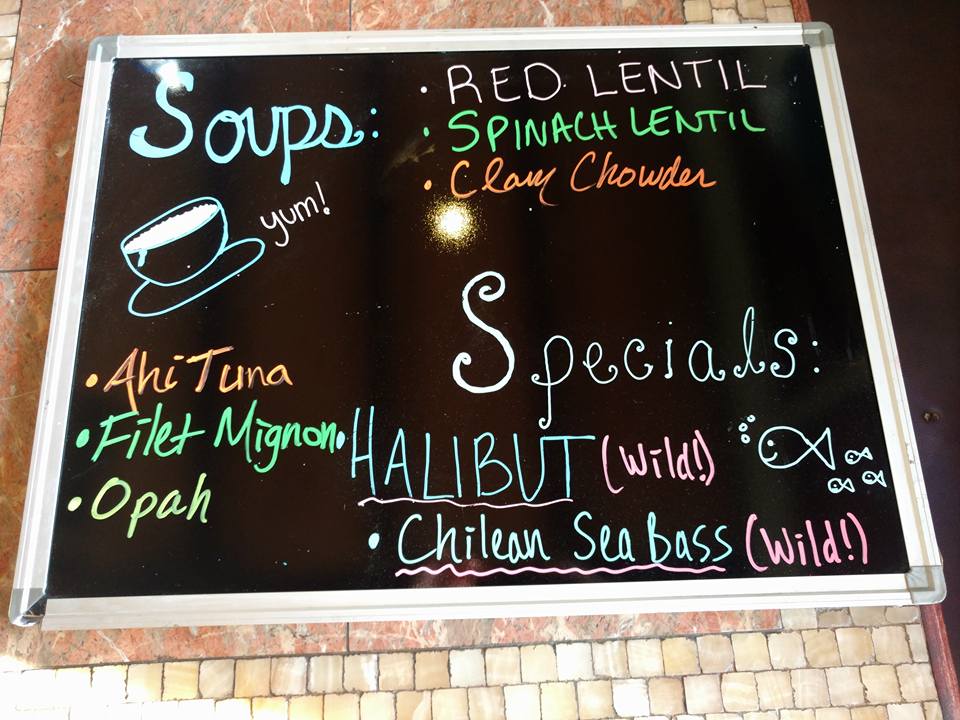 Soups:
• RED LENTIL
• SPINACH LENTIL
• Clam Chowder
yum!
Specials:
• Ahi Tuna
• Filet Mignon
• Opah
• HALIBUT (Wild!)
• Chilean Sea Bass (Wild!)